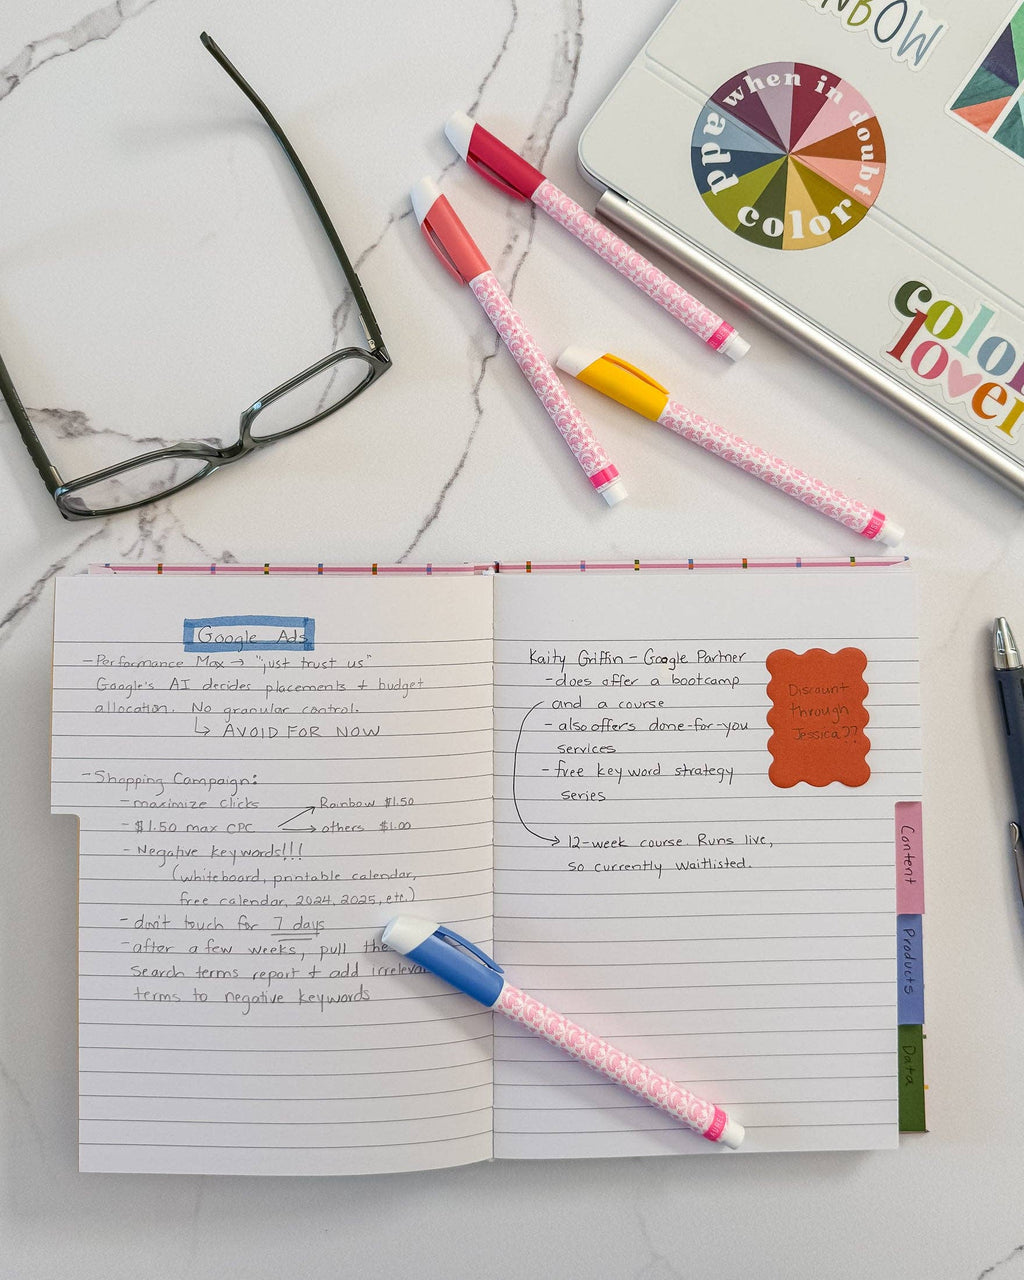 when in doubt
add color
color
lover
Google Ads
- Performance Max → "just trust us"
Google's AI decides placements + budget
allocation. No granular control.
↳ AVOID FOR NOW
- Shopping Campaign:
- maximize clicks → Rainbow $1.50
- $1.50 max CPC → others $1.00
- Negative keywords!!!
(whiteboard, printable calendar,
free calendar, 2024, 2025, etc.)
- don't touch for 7 days
- after a few weeks, pull the
search terms report + add irrelevan
terms to negative keywords
Kaity Griffin - Google Partner
- does offer a bootcamp
and a course
- also offers done-for-you
services
- free keyword strategy
series
→ 12-week course. Runs live,
so currently waitlisted.
Discount
through
Jessica??
Content
Products
Data